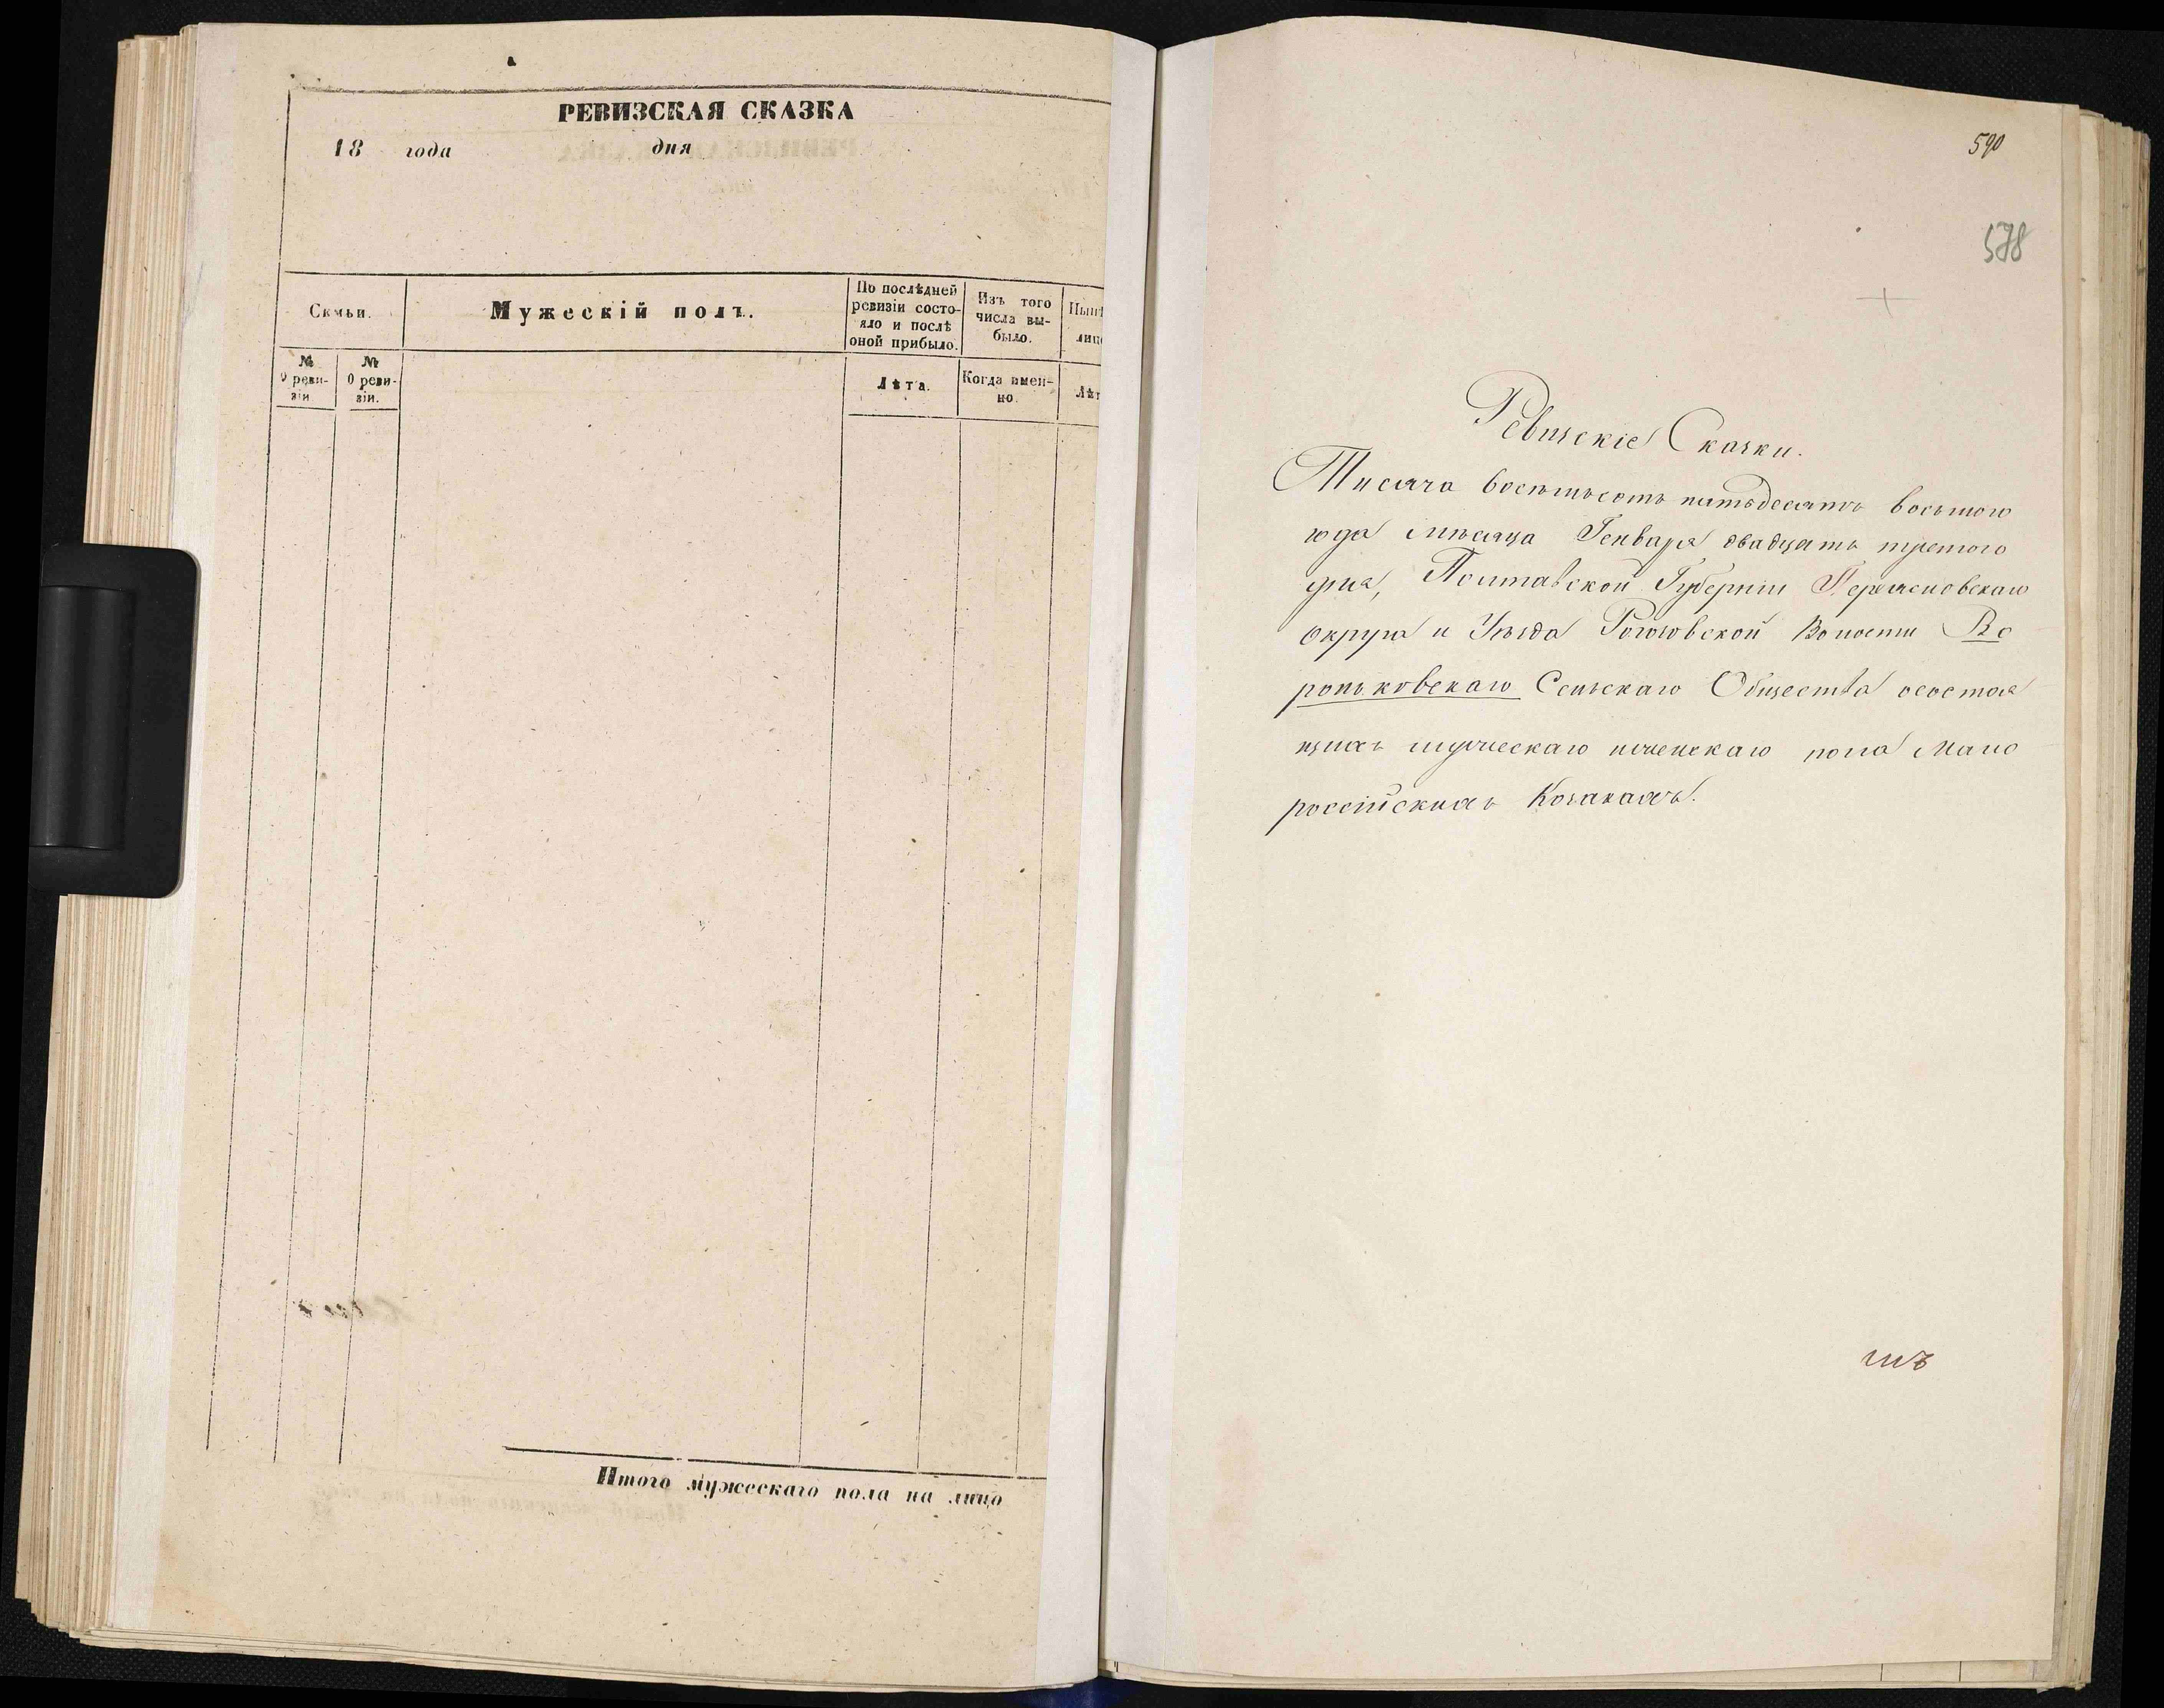 РЕВИЗСКАЯ СКАЗКА
18 года дня
Семьи.
Мужескій полъ.
По послѣдней
ревизіи состо-
яло и послѣ
оной прибыло.
Изъ того
числа вы-
было.
№
0 реви-
зіи
№
0 реви-
зіи.
Лѣта.
Когда имен-
но.
Итого мужескаго пола на лицо
590
578
Ревизскіе Сказки.
Тисяча восемьсотъ пятьдесятъ восьмого
года мѣсяца Генваря двадцать третого
дня, Полтавской Губерніи Переяславскаго
округа и Уѣзда Рогозовской Волости Во
роньковскаго Сельскаго Общества осостоя
щихъ мужескаго иженскаго пола Мало
россійскихъ Козакахъ.